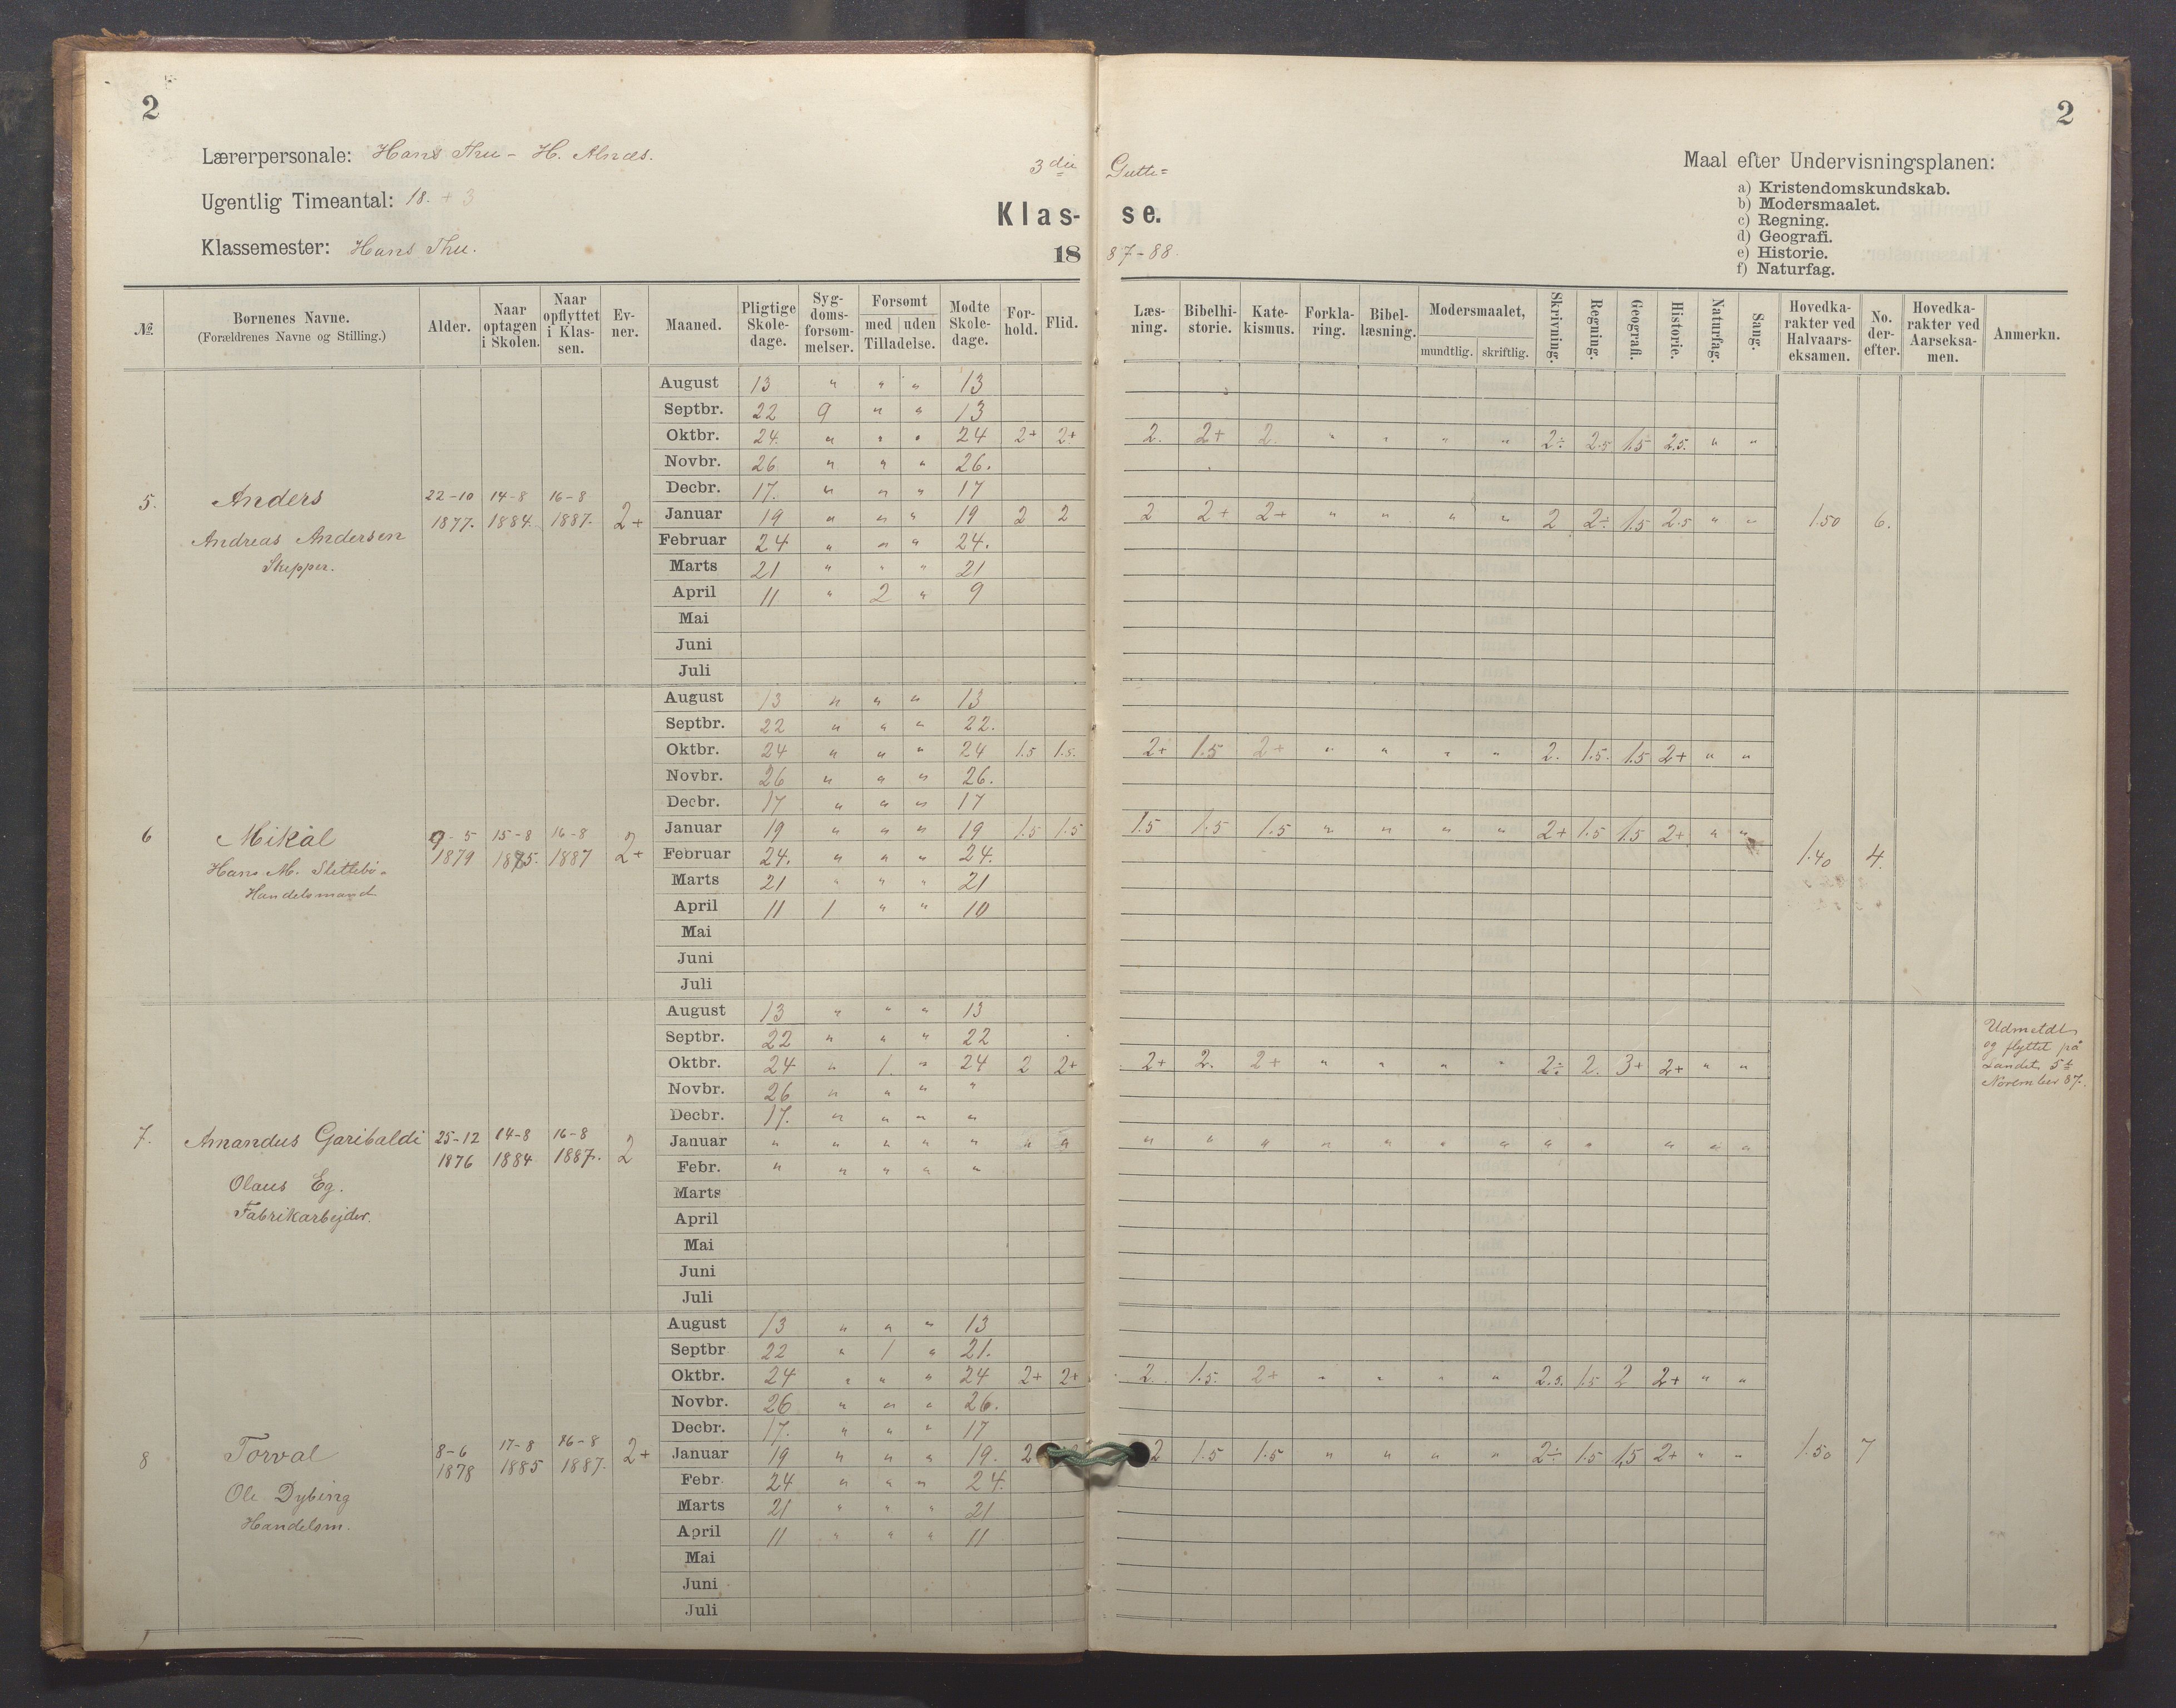 2
2
Lærerpersonale: Hans Thu - H. Alnæs.
3die Gutte=
Maal efter Undervisningsplanen:
Ugentlig Timeantal: 18. + 3
Klas- se.
a) Kristendomskundskab.
b) Modersmaalet.
c) Regning.
d) Geografi.
e) Historie.
f) Naturfag.
Klassemester: Hans Thu.
18 87-88.
№ Børnenes Navne. (Forældrenes Navne og Stilling.) Alder. Naar optagen i Skolen. Naar opflyttet i Klassen. Evner. Maaned. Pligtige Skoledage. Sygdomsforsømmelser. Forsømt med | uden Tilladelse. Mødte Skoledage. Forhold. Flid. Læsning. Bibelhistorie. Katekismus. Forklaring. Bibellæsning. Modersmaalet, mundtlig. skriftlig. Skrivning. Regning. Geografi. Historie. Naturfag. Sang. Hovedkarakter ved Halvaarseksamen. No. derefter. Hovedkarakter ved Aarseksamen. Anmerkn.
5. Anders
Andreas Andersen
Skipper.
22-10 14-8 16-8
1877. 1884. 1887. 2+
August 13 " " " 13
Septbr. 22 9 " " 13
Oktbr. 24. " " " 24 2+ 2+ 2. 2+ 2. " " " " 2÷ 2.5 1.5 2.5. " "
Novbr. 26 " " " 26.
Decbr. 17. " " " 17
Januar 19 " " " 19 2 2 2 2+ 2+ " " " " 2 2÷ 1.5 2.5 " " 1.50 6.
Februar 24 " " " 24.
Marts 21 " " " 21
April 11 " 2 " 9
Mai
Juni
Juli
6 Mikal
Hans M. Slettebö.
Handelsmand
9-5 15-8 16-8
1879 1885. 1887 2+
August 13 " " " 13
Septbr. 22 " " " 22.
Oktbr. 24 " " " 24 1.5 1.5. 2+ 1.5 2+ " " " " 2. 1.5. 1.5 2+ " "
Novbr. 26 " " " 26.
Decbr. 17 " " " 17
Januar 19 " " " 19 1.5 1.5 1.5 1.5 1.5 " " " " 2+ 1.5 1.5 2+ " "
Februar 24. " " " 24. 1.40 4.
Marts 21 " " " 21
April 11 1 " " 10
Mai
Juni
Juli
7. Amandus Garibaldi
Olaus Eg.
Fabrikarbejder.
25-12 14-8 16-8
1876 1884 1887. 2
August 13 " " " 13
Septbr. 22 " " " 22
Oktbr. 24 " 1 " 24 2 2+ 2+ 2. 2+ " " " " 2÷ 2. 3+ 2+ " "
Novbr. 26 " " " "
Decbr. 17. " " " "
Januar " " " " " " " " " " " " " " " " " " "
Febr. " " " " "
Marts
April
Mai
Juni
Juli
Udmeldt
og flyttet på
Landet 5te
November 87.
8 Torval
Ole Dybing
Handelsm.
8-6 17-8 16-8
1878 1885 1887. 2+
August 13 " " " 13
Septbr 22 " 1 " 21.
Oktbr. 24 " " " 24 2+ 2+ 2. 1.5. 2+ " " " " 2.5. 1.5 2 2+ " "
Novbr. 26 " " " 26.
Decbr. 17. " " " 17
Januar 19 " " " 19. 2 2 1.5 1.5 " " " " 2÷ 1.5 1,5 2+ " " 1.50 7
Febr. 24 " " " 24.
Marts 21 " " " 21
April 11 " " " 11
Mai
Juni
Juli